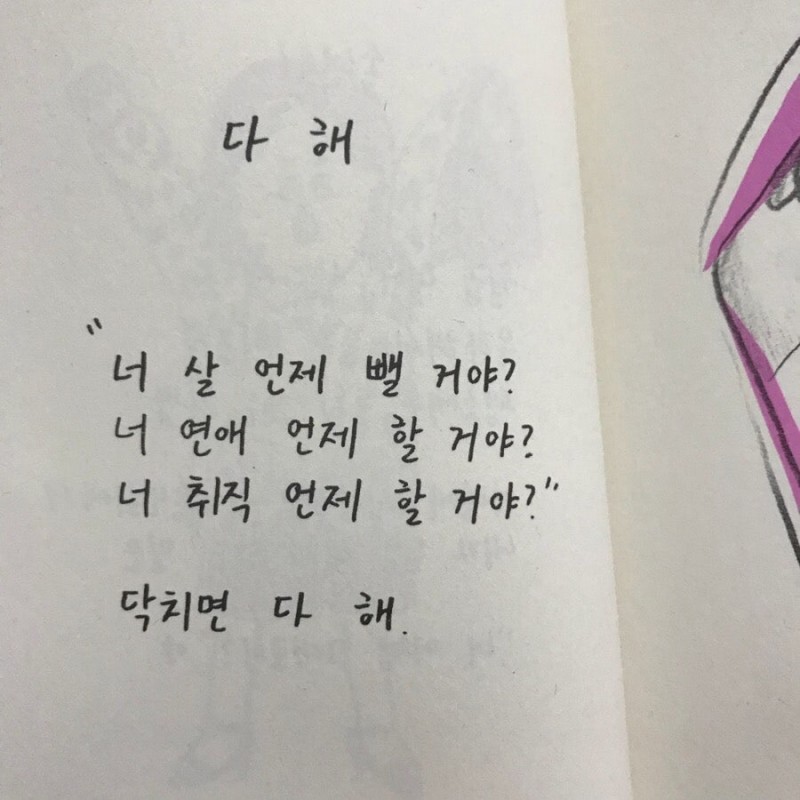 다 해
"너 살 언제 뺄 거야?
너 연애 언제 할 거야?
너 취직 언제 할 거야?"
닥치면 다 해.